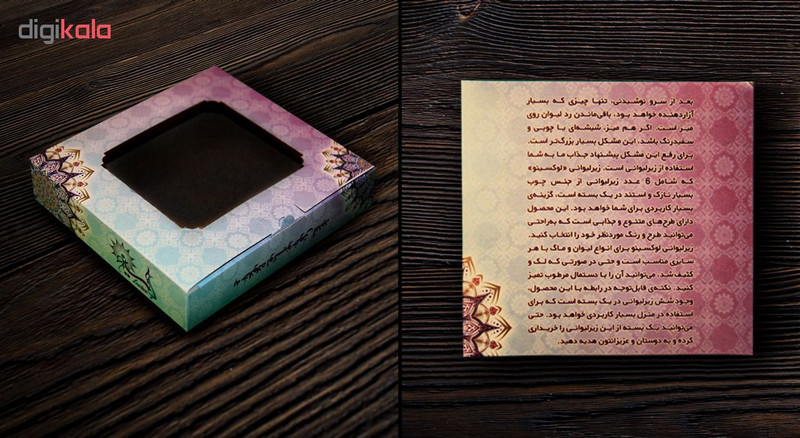 digikala
بعد از سرو نوشیدنی، تنها چیزی که بسیار
آزاردهنده خواهد بود، باقی‌ماندن رد لیوان روی
میز است. اگر هم میز، شیشه‌ای یا چوبی و
سفیدرنگ باشد، این مشکل بسیار بزرگ‌تر است.
برای رفع این مشکل پیشنهاد جذاب ما به شما
استفاده از زیرلیوانی است. زیرلیوانی «لوکسینو»
که شامل 6 عدد زیرلیوانی از جنس چوب
بسیار نازک و استند در یک بسته است، گزینه‌ی
بسیار کاربردی برای شما خواهد بود. این محصول
دارای طرح‌های متنوع و جذابی است که به‌راحتی
می‌توانید طرح و رنگ موردنظر خود را انتخاب کنید.
زیرلیوانی لوکسینو برای انواع لیوان و ماگ با هر
سایزی مناسب است و حتی در صورتی که لک و
کثیف شد، می‌توانید آن را با دستمال مرطوب تمیز
کنید. نکته‌ی قابل‌توجه در رابطه با این محصول،
وجود شش زیرلیوانی در یک بسته است که برای
استفاده در منزل بسیار کاربردی خواهد بود. حتی
می‌توانید یک بسته از این زیرلیوانی را خریداری
کرده و به دوستان و عزیزانتون هدیه دهید.